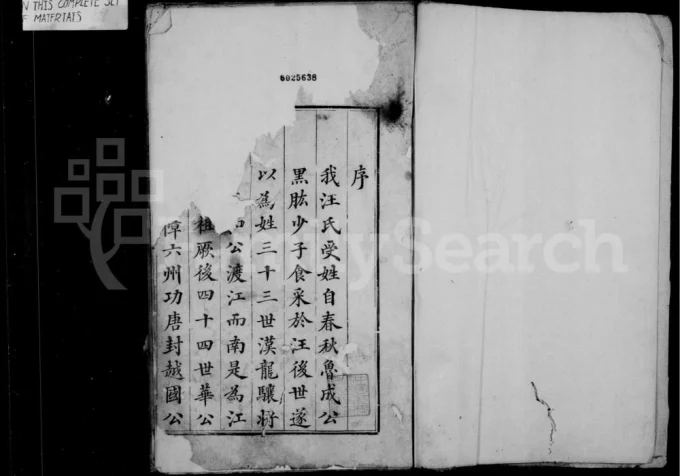 N THIS COMPLETE SET
F MATERIALS
6025638
序
我汪氏受姓自春秋魯成公
黑肱少子食采於汪後世遂
以為姓三十三世漢龍驤將
公渡江而南是為江
祖厥後四十四世華公
障六州功唐封越國公
FamilySearch